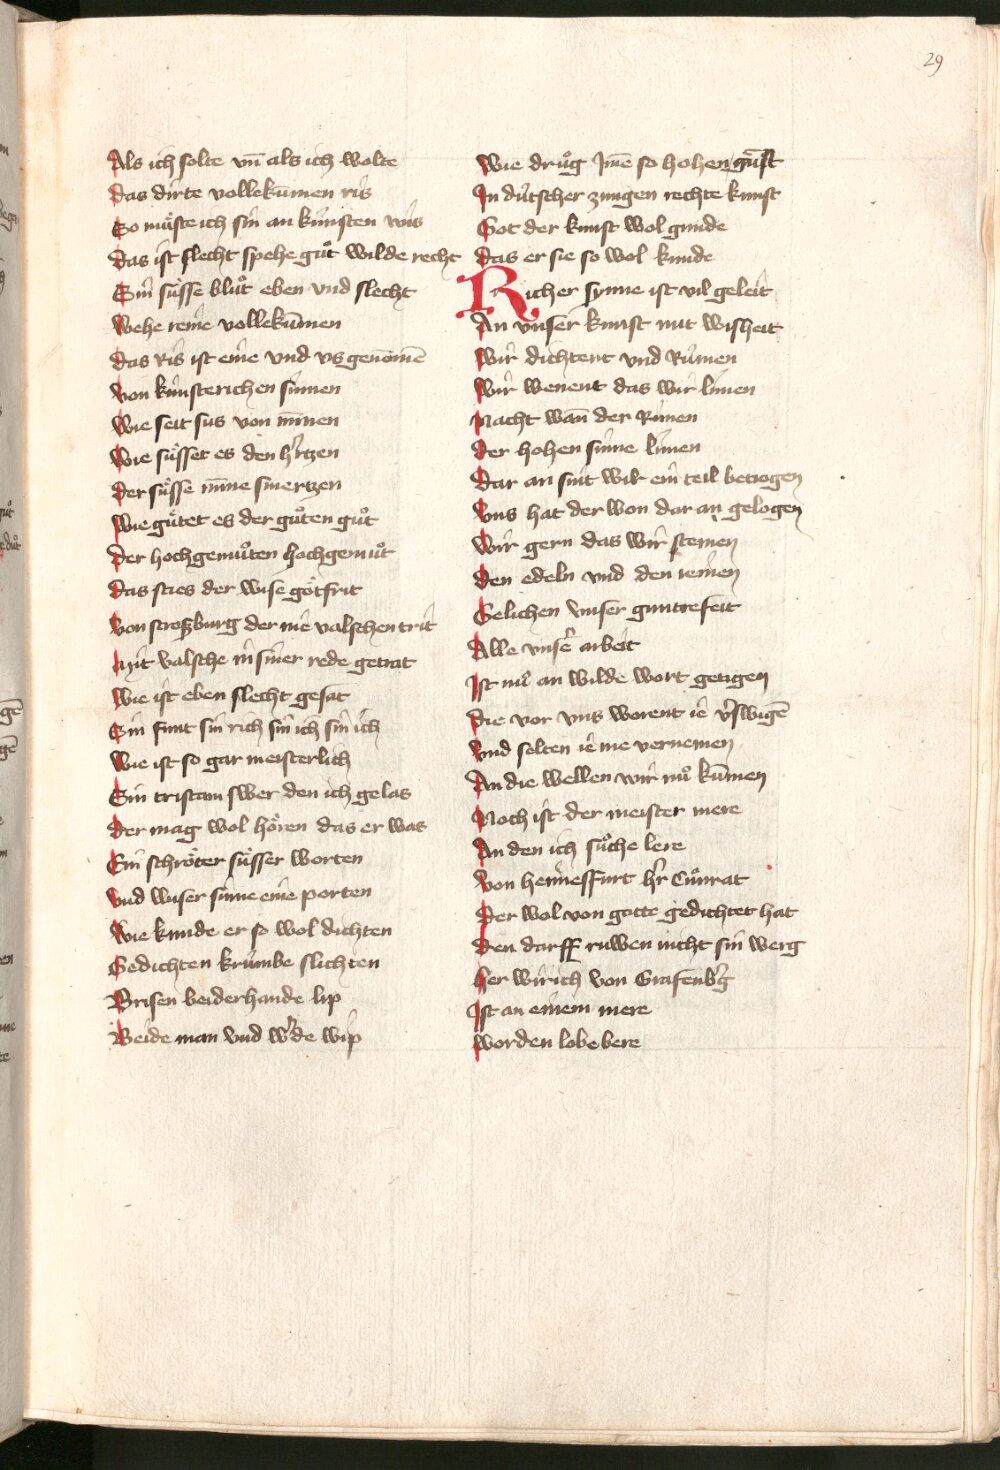 29
Als ich solte vn̄ als ich wolte
das dirte vollekūmen ris
So mu̍ste ich sin an ku̍nsten wis
das ist slecht spehe gůt wilde recht
Ein su̍sse blůt eben vnd slecht
wehe reine vollekūmen
das Ris ist eine vnd vsgenōmē
von ku̍nsterichen sinnen
wie seit sus von mīnen
wie su̍sset es den h'rtzen
der su̍sse mīne smertzen
wie gu̍tet es der gůten gůt
der hochgemůten hochgemůt
das sties der wise gotfrit
von stroszburg der nie valschen trit
Mit valsche in siner rede getrat
wie ist eben slecht gesat
Sin funt sin rich sin ich sin ich
wie ist so gar meisterlich
Sin tristam swer den ich gelas
der mag wol hören das er was
Ein schröter su̍sser worten
vnd wiser sinne eine porten
wie kunde er so wol dichten
Gedichten kru̍mbe slichten
Brisen beiderhande lip
Beide man vnd w'de wip
wie drůg Jme so hohen gūst
Jn du̍tscher zungen rechte kunst
Got der kunst wol gunde
das er sie so wol kunde
Richer synne ist vil geleit
An vnser kunst mit wisheit
wir dichtent vnd Rimen
wir wenent das wir limen
Nacht wan̄ der Rimen
der hohen sinne limen
Dar an sint wir ein teil betrogen
Vns hat der won dar an gelogen
wir gern das wir steinen
den edeln vnd den reinen
Gelichen vnser guntrefeit
Alle vnser arbeit
Ist nů an wilde wort getigen
die vor vns worent ie v'swigē
vnd selten ie me vernemen
An die wellen wir nů kūmen
Noch ist der meister mere
An den ich sůche lere
von heinesffurt h'r Cůnrat
Der wol von gotte gedichtet hat
den darff ruwen nicht sin werg
her wirich von Grafenb'g
Ist an einem mere
worden lobebere